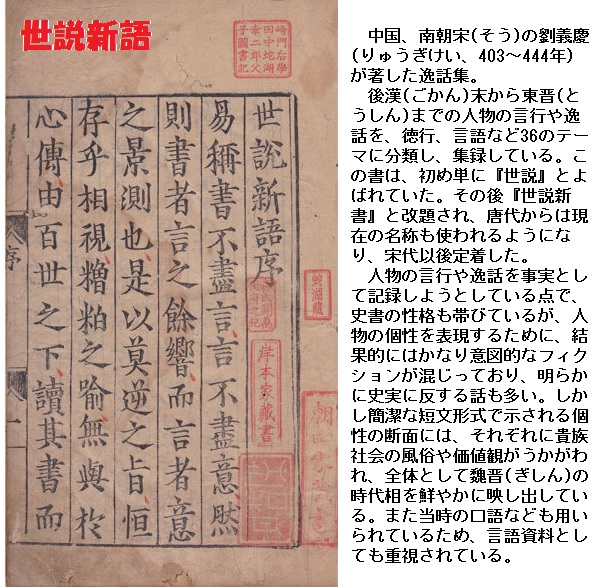 世説新語
世說新語序
易稱書不盡言言不盡意然
則書者言之餘響而言者意
之景測也是以莫逆之旨恒
存乎相視糟粕之喻無與於
心傳由百世之下讀其書而
序
岸本家藏書
崎門后學
田中蛇湖
素二郎父
子圖書記
蛇湖藏
中国、南朝宋(そう)の劉義慶
(りゅうぎけい、403～444年)
が著した逸話集。
後漢(ごかん)末から東晋(と
うしん)までの人物の言行や逸
話を、徳行、言語など36のテー
マに分類し、集録している。こ
の書は、初め単に『世説』とよ
ばれていた。その後『世説新
書』と改題され、唐代からは現
在の名称も使われるようにな
り、宋代以後定着した。
人物の言行や逸話を事実とし
て記録しようとしている点で、
史書の性格も帯びているが、人
物の個性を表現するために、結
果的にはかなり意図的なフィク
ションが混じっており、明らか
に史実に反する話も多い。しか
し簡潔な短文形式で示される個
性の断面には、それぞれに貴族
社会の風俗や価値観がうかがわ
れ、全体として魏晋(ぎしん)の
時代相を鮮やかに映し出してい
る。また当時の口語なども用い
られているため、言語資料とし
ても重視されている。